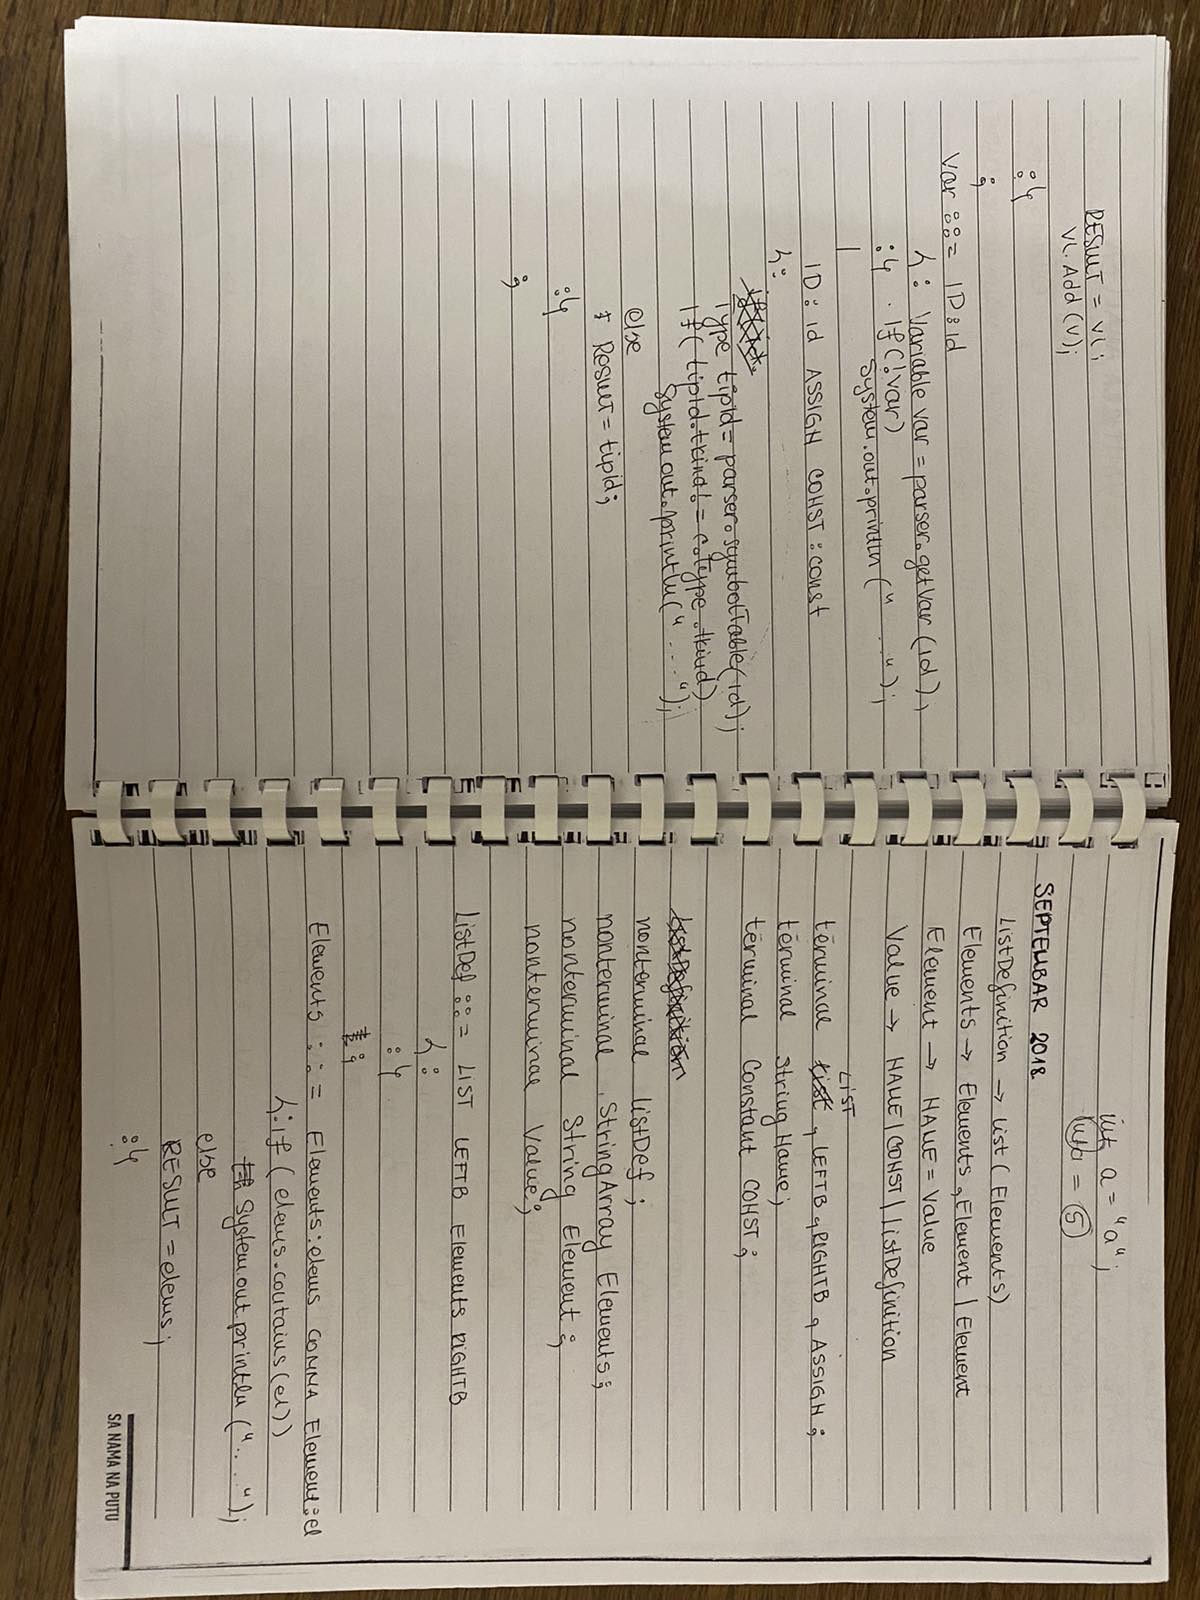 RESULT = VL;
VL. Add (V);
:}
;
Var ::= ID:id
{: Variable var = parser.getVar (id),
:} . If (!var)
System.out.println (" ... ");
|
ID : id ASSIGN CONST : const
{:
Type tipId = parser.symbolTable(id);
If( tipId.tkind != c.type.tkind)
System.out.println(" .... ");
else
RESULT = tipId;
:}
;
int a = "a";
= 5
SEPTEMBAR 2018.
ListDefinition → List ( Elements)
Elements → Elements , Element | Element
Element → NAME = Value
Value → NAME | CONST | ListDefinition
LIST
terminal List , LEFTB , RIGHTB , ASSIGN ;
terminal String Name;
terminal Constant CONST ;
ListDefinition
nonterminal listDef ;
nonterminal StringArray Elements;
nonterminal String Element ;
nonterminal Value;
ListDef ::= LIST LEFTB Elements RIGHTB
{:
:}
;
Elements ::= Elements:elems COMMA Element:el
{: If ( elems.contains(el))
System.out.println (".. .. ");
else
RESULT = elems;
:}
SA NAMA NA PUTU